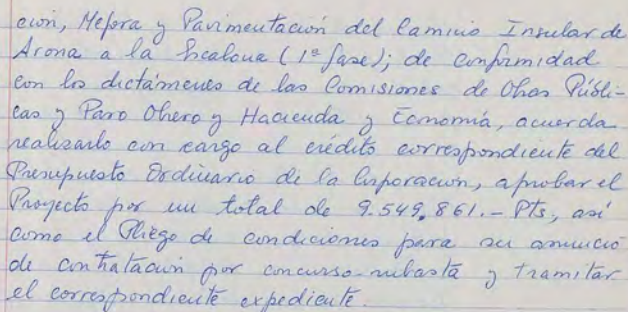 ción, Mejora y Pavimentación del Camino Insular de
Arona a la Escalona (1ª fase); de conformidad
con los dictámenes de las Comisiones de Obras Públi-
cas y Paro Obrero y Hacienda y Economía, acuerda
realizarlo con cargo al crédito correspondiente del
Presupuesto Ordinario de la Corporación, aprobar el
Proyecto por un total de 9.549.861.- Pts, así
como el Pliego de condiciones para su anuncio
de contratación por concurso-subasta y tramitar
el correspondiente expediente.